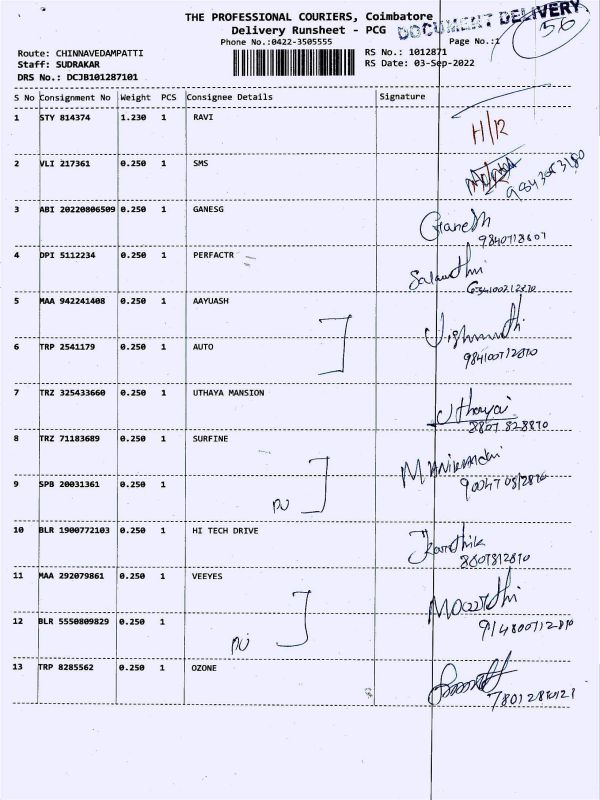 THE PROFESSIONAL COURIERS, Coimbatore
DOCUMENT DELIVERY
56
Delivery Runsheet - PCG
Page No.:1
Phone No.:0422-3505555
Route: CHINNAVEDAMPATTI
RS No.: 1012871
Staff: SUDRAKAR
RS Date: 03-Sep-2022
DRS No.: DCJB101287101
S No Consignment No Weight PCS Consignee Details Signature
1 STY 814374 1.230 1 RAVI
H/R
2 VLI 217361 0.250 1 SMS
3 ABI 20220806509 0.250 1 GANESG
Ganesh
4 DPI 5112234 0.250 1 PERFACTR
5 MAA 942241408 0.250 1 AAYUASH
6 TRP 2541179 0.250 1 AUTO
7 TRZ 325433660 0.250 1 UTHAYA MANSION
Uthaya
8807 828810
8 TRZ 71183689 0.250 1 SURFINE
9 SPB 20031361 0.250 1
10 BLR 1900772103 0.250 1 HI TECH DRIVE
Karthik
8607812810
11 MAA 292079861 0.250 1 VEEYES
12 BLR 5550809829 0.250 1
13 TRP 8285562 0.250 1 OZONE